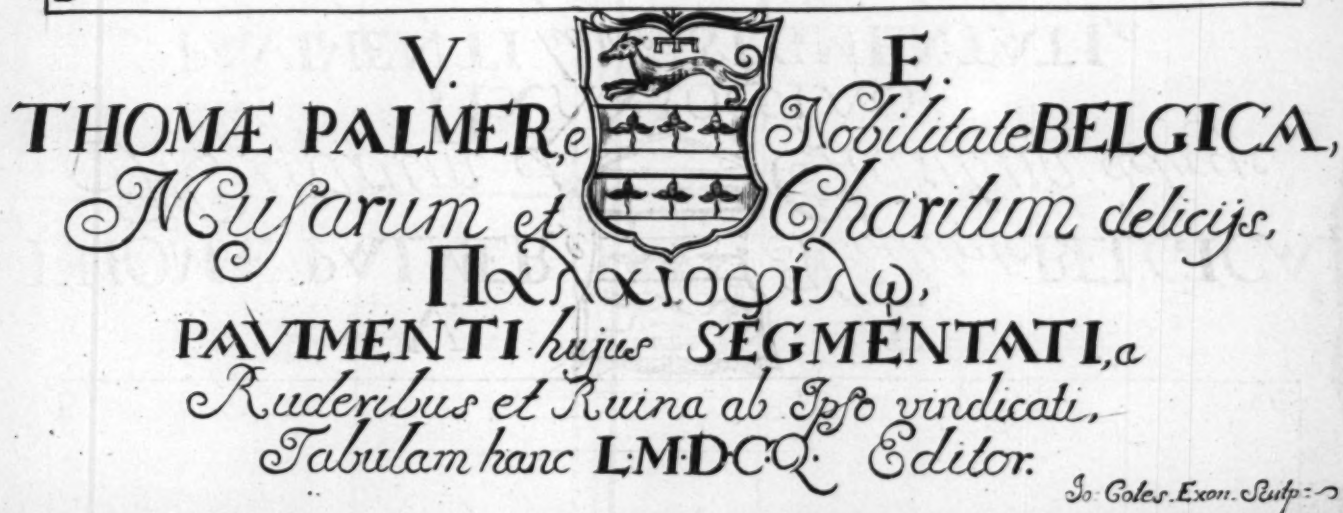 V. E.
THOMÆ PALMER, e Nobilitate BELGICA,
Muſarum et Charitum delicijs,
Παλαιοφίλῳ,
PAVIMENTI hujus SEGMENTATI, a
Ruderibus et Ruina ab Ipſo vindicati,
Tabulam hanc L·M·D·C·Q· Editor.
Jo: Coles. Exon. Sculp: